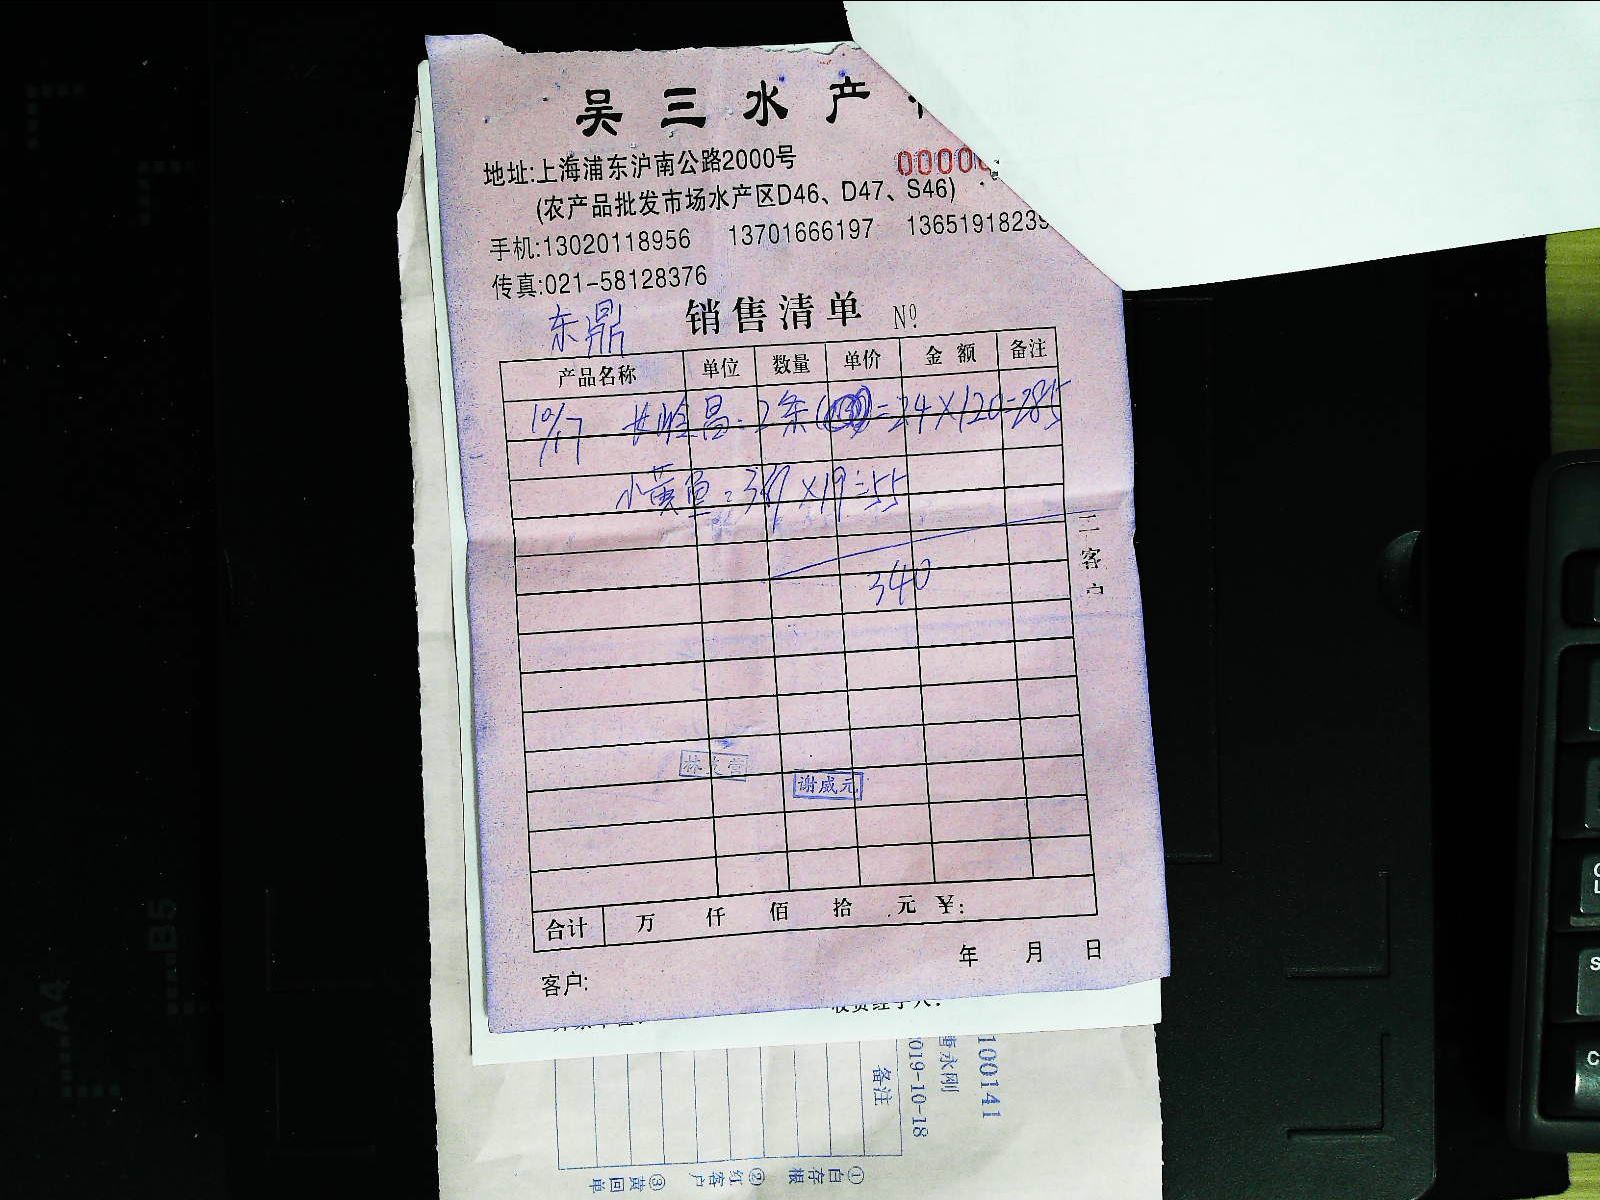 吴三水产
00000
地址:上海浦东沪南公路2000号
(农产品批发市场水产区D46、D47、S46)
手机:13020118956 13701666197 1365191823
传真:021-58128376
东鼎 销售清单 Nº
产品名称 单位 数量 单价 金额 备注
10/17 2条 =24×120=285
小黄鱼: ×19=55
340
二客户
谢威元
合计 万 仟 佰 拾 元 ¥:
年 月 日
客户:
100141
019-10-18
备注
①白存根 ②红客户 ③黄回单
B5
A4